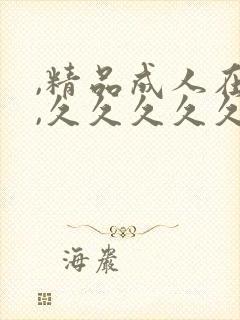 ,精品成人在
,久久久久久
海岩